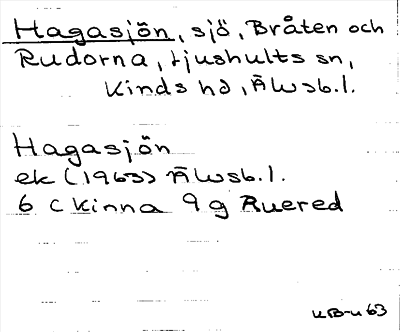 Hagasjön, sjö, Bråten och
Rudorna, Ljushults sn,
Kinds hd, Älvsb. l.
Hagasjön
ek (1963) Älvsb. l.
6 C Kinna 9 g Ruered
63